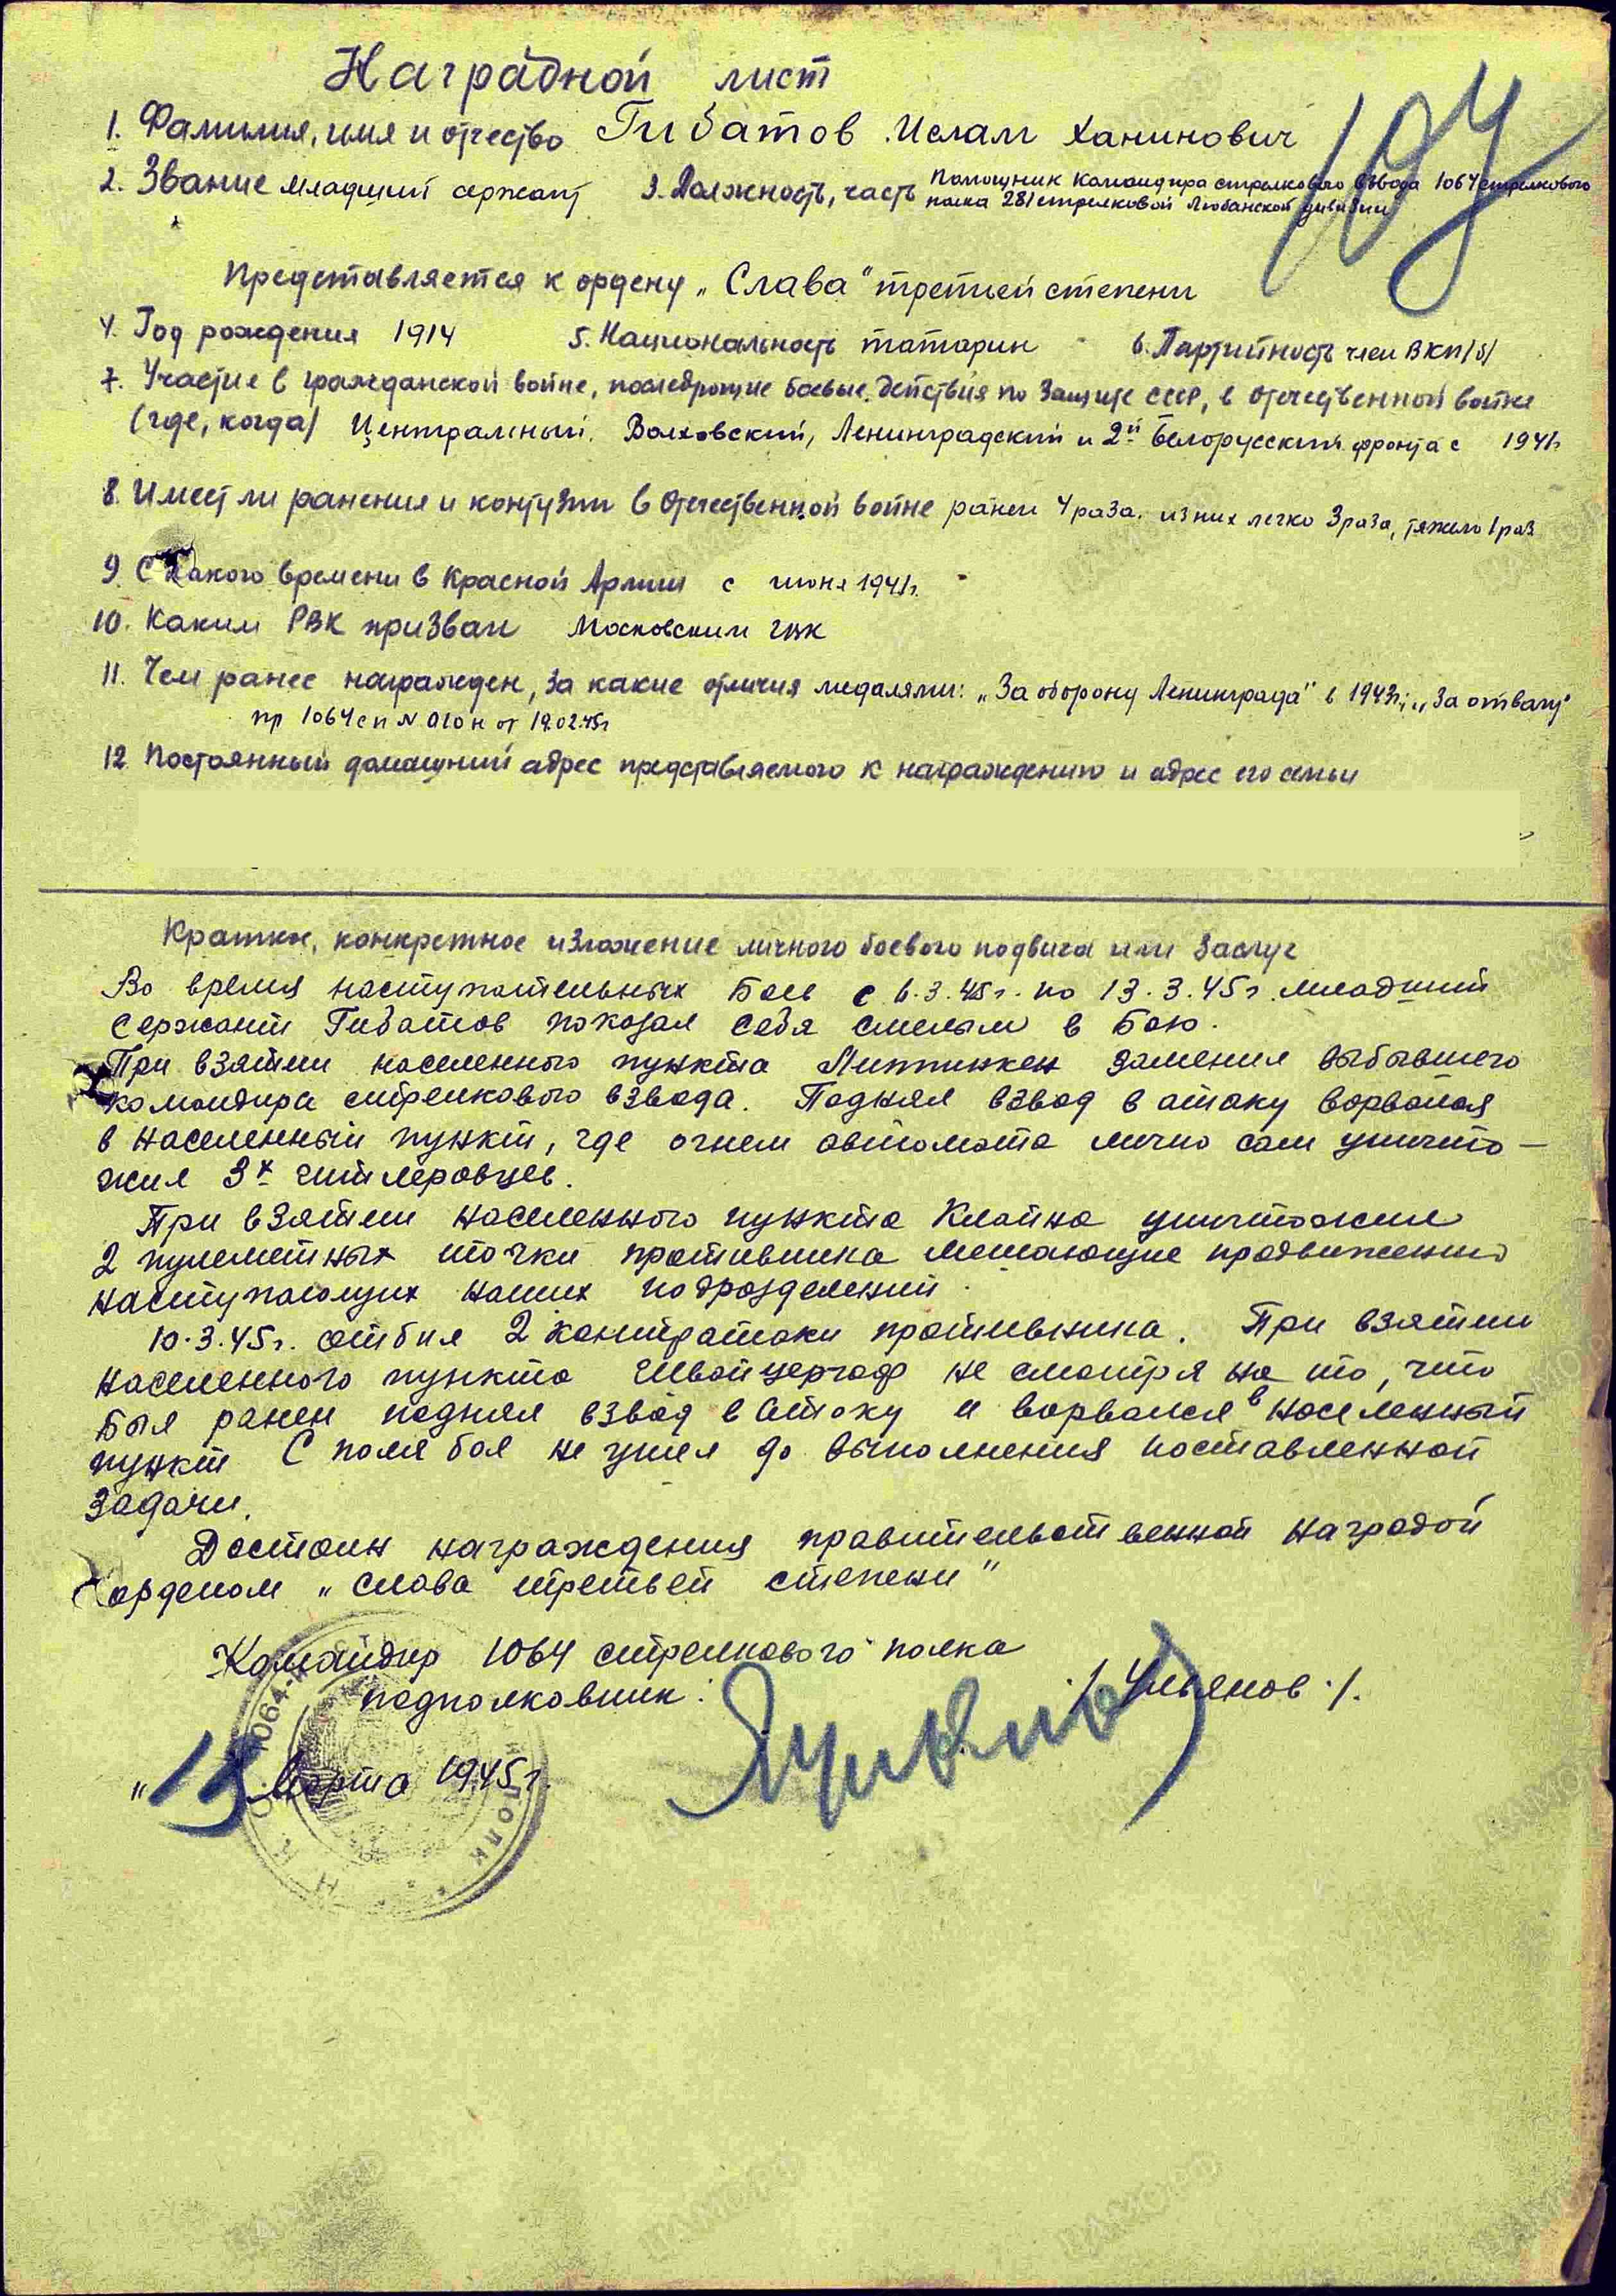 Наградной лист
1. Фамилия, имя и отчество Гибатов Ислам Ханинович
2. Звание младший сержант 3. Должность, часть Помощник командира стрелкового взвода 1064 стрелкового
полка 281 стрелковой Любанской дивизии
Представляется к ордену „Слава" третьей степени
4. Год рождения 1914 5. Национальность татарин 6. Партийность член ВКП/б/
7. Участие в гражданской войне, последующие боевые действия по защите СССР, в отечественной войне
(где, когда) Центральный, Волховский, Ленинградский и 2й Белорусский фронта с 1941г
8. Имеет ли ранения и контузии в отечественной войне ранен 4 раза, из них легко 3 раза, тяжело 1 раз
9. С какого времени в Красной Армии с июня 1941г.
10. Каким РВК призван Московским ГВК
11. Чем ранее награжден, за какие отличия медалями: „За оборону Ленинграда" в 1943г; „За отвагу"
пр 1064 сп N 010н от 19.02.45г
12. Постоянный домашний адрес представляемого к награждению и адрес его семьи
Краткое, конкретное изложение личного боевого подвига или заслуг
Во время наступательных боев с 6.3.45г. по 13.3.45г. младший
сержант Гибатов показал себя смелым в бою.
При взятии населенного пункта заменил выбывшего
командира стрелкового взвода. Поднял взвод в атаку ворвался
в населенный пункт, где огнем автомата лично сам уничто-
жил 3х гитлеровцев.
При взятии населенного пункта уничтожил
2 пулеметных точки противника мешающие продвижению
наступающих наших подразделений.
10.3.45г. отбил 2 контратаки противника. При взятии
населенного пункта Швайцергоф не смотря на то, что
был ранен поднял взвод в атаку и ворвался в населенный
пункт С поля боя не ушел до выполнения поставленной
задачи.
Достоин награждения правительственной наградой
орденом „Слава третьей степени"
Командир 1064 стрелкового полка
подполковник: /Ульянов./.
" марта 1945г.
1064
ПОЛК
НКО